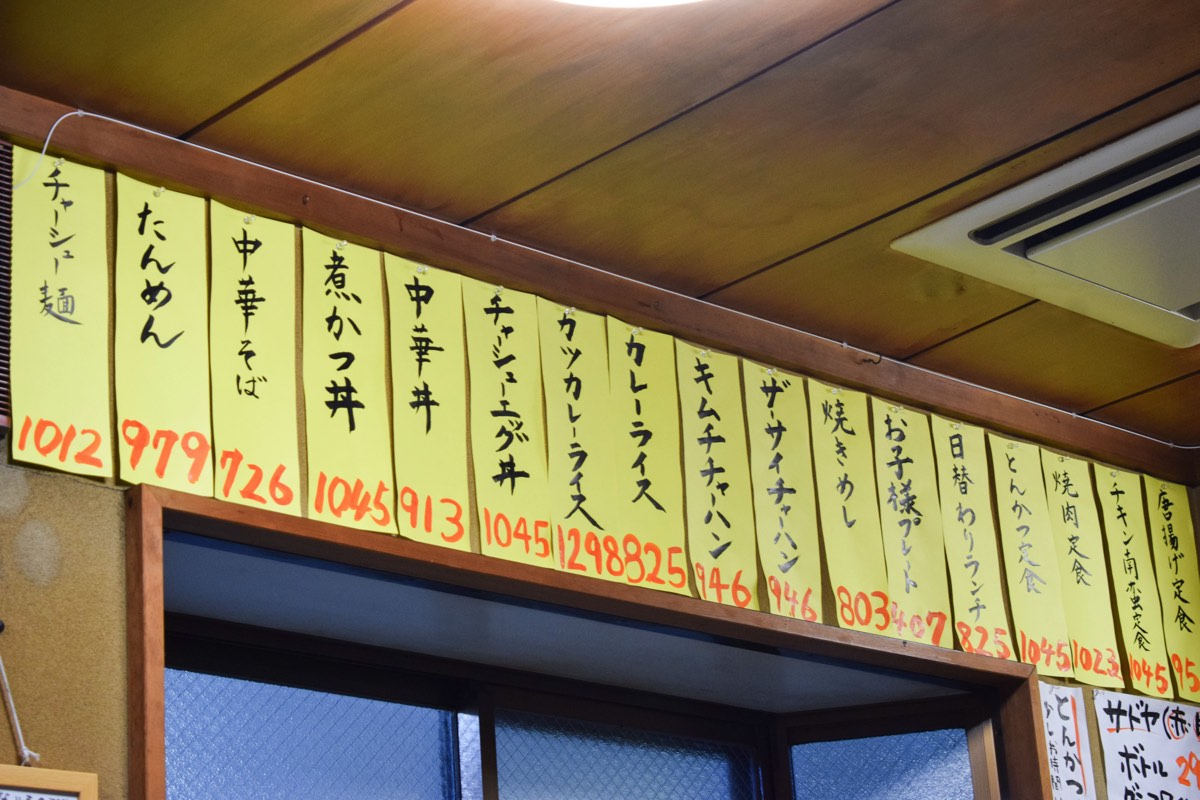 チャーシュー麺
1012
たんめん
979
中華そば
726
煮かつ丼
1045
中華丼
913
チャーシューエッグ丼
1045
カツカレーライス
1298
カレーライス
825
キムチチャーハン
946
ザーサイチャーハン
946
焼きめし
803
お子様プレート
407
日替わりランチ
825
とんかつ定食
1045
焼肉定食
1023
チキン南蛮定食
1045
唐揚げ定食
95
とんかつ
サドヤ(赤
ボトル 29